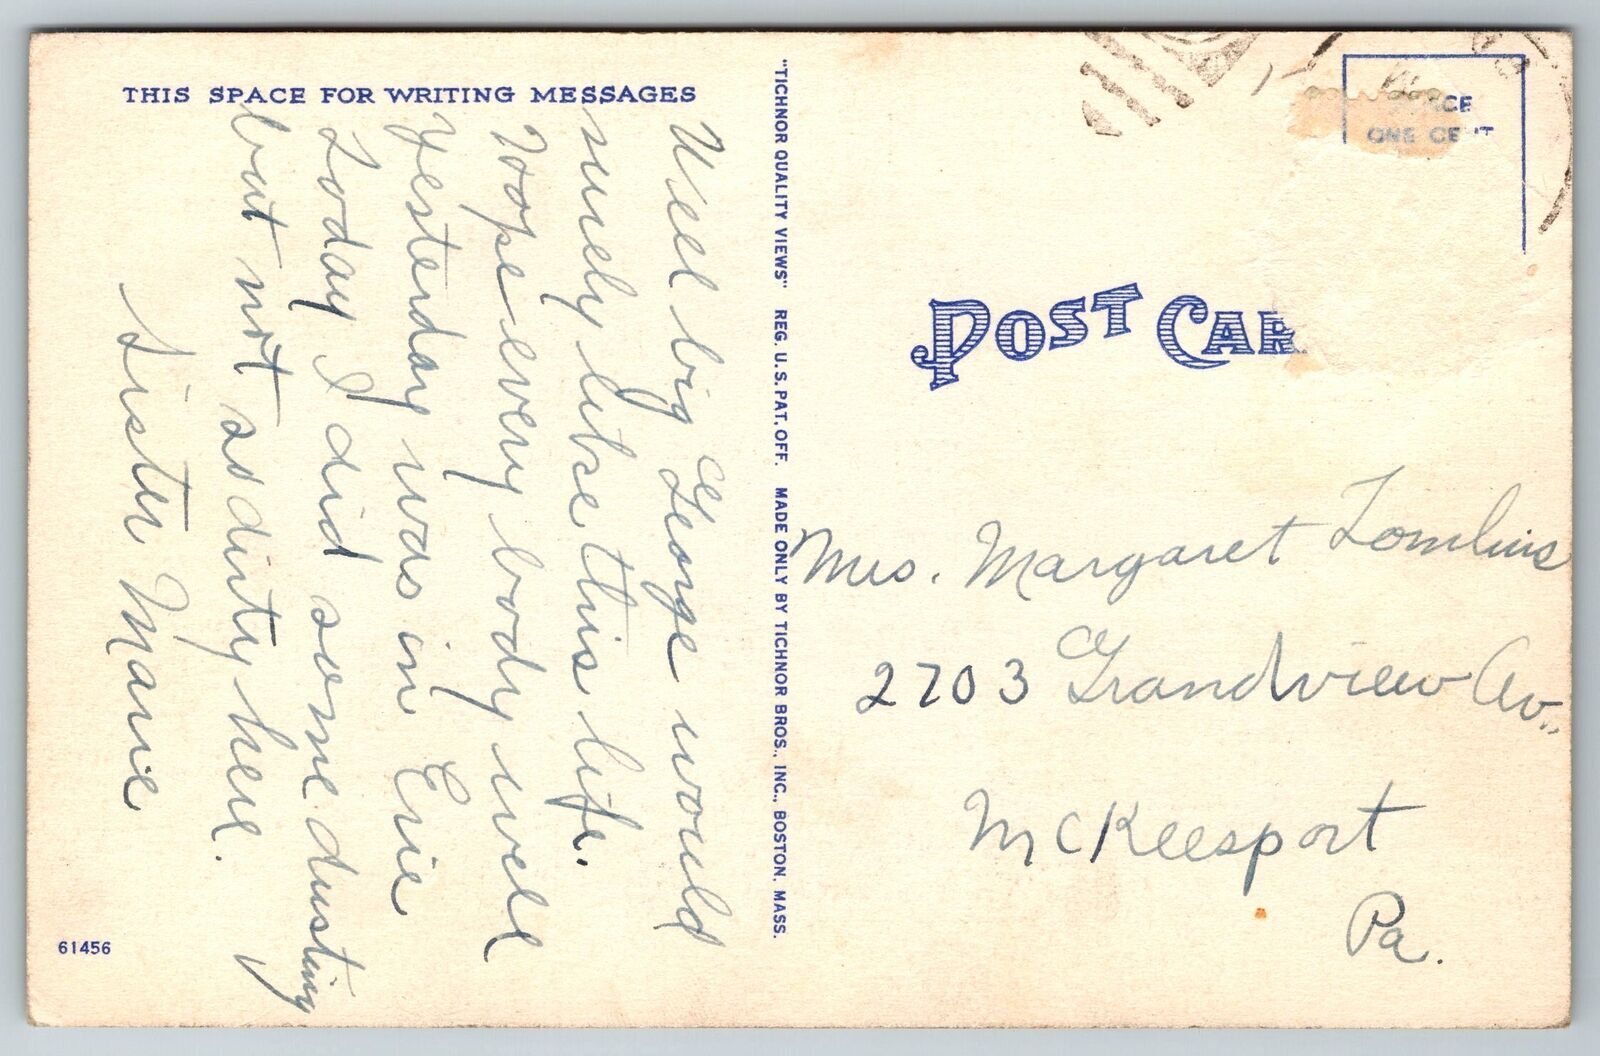 THIS SPACE FOR WRITING MESSAGES
Well big George would
surely like this life.
Hope every body well
Yesterday was in Erie
Today I did some dusting
but not as dirty here.
Sister Marie
61456
"TICHNOR QUALITY VIEWS" REG. U.S. PAT. OFF. MADE ONLY BY TICHNOR BROS., INC., BOSTON, MASS.
CE
ONE CE T
POST CAR
Mrs. Margaret Tomlins
2703 Grandview Av.,
McKeesport
Pa.